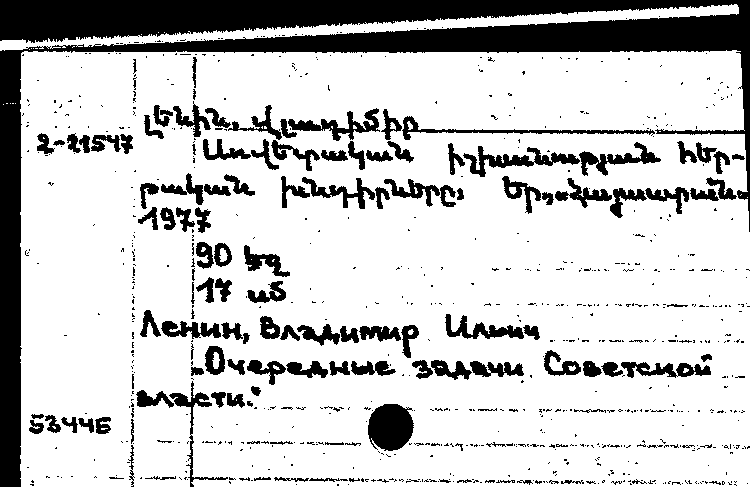 Լենին, Վլադիմիր
2-21547
Սովետական իշխանության հեր-
թական խնդիրները, Եր., «Հայաստան»
1977
90 էջ
17 սմ
Ленин, Владимир Ильич
„Очередные задачи Советской
власти."
5344Б